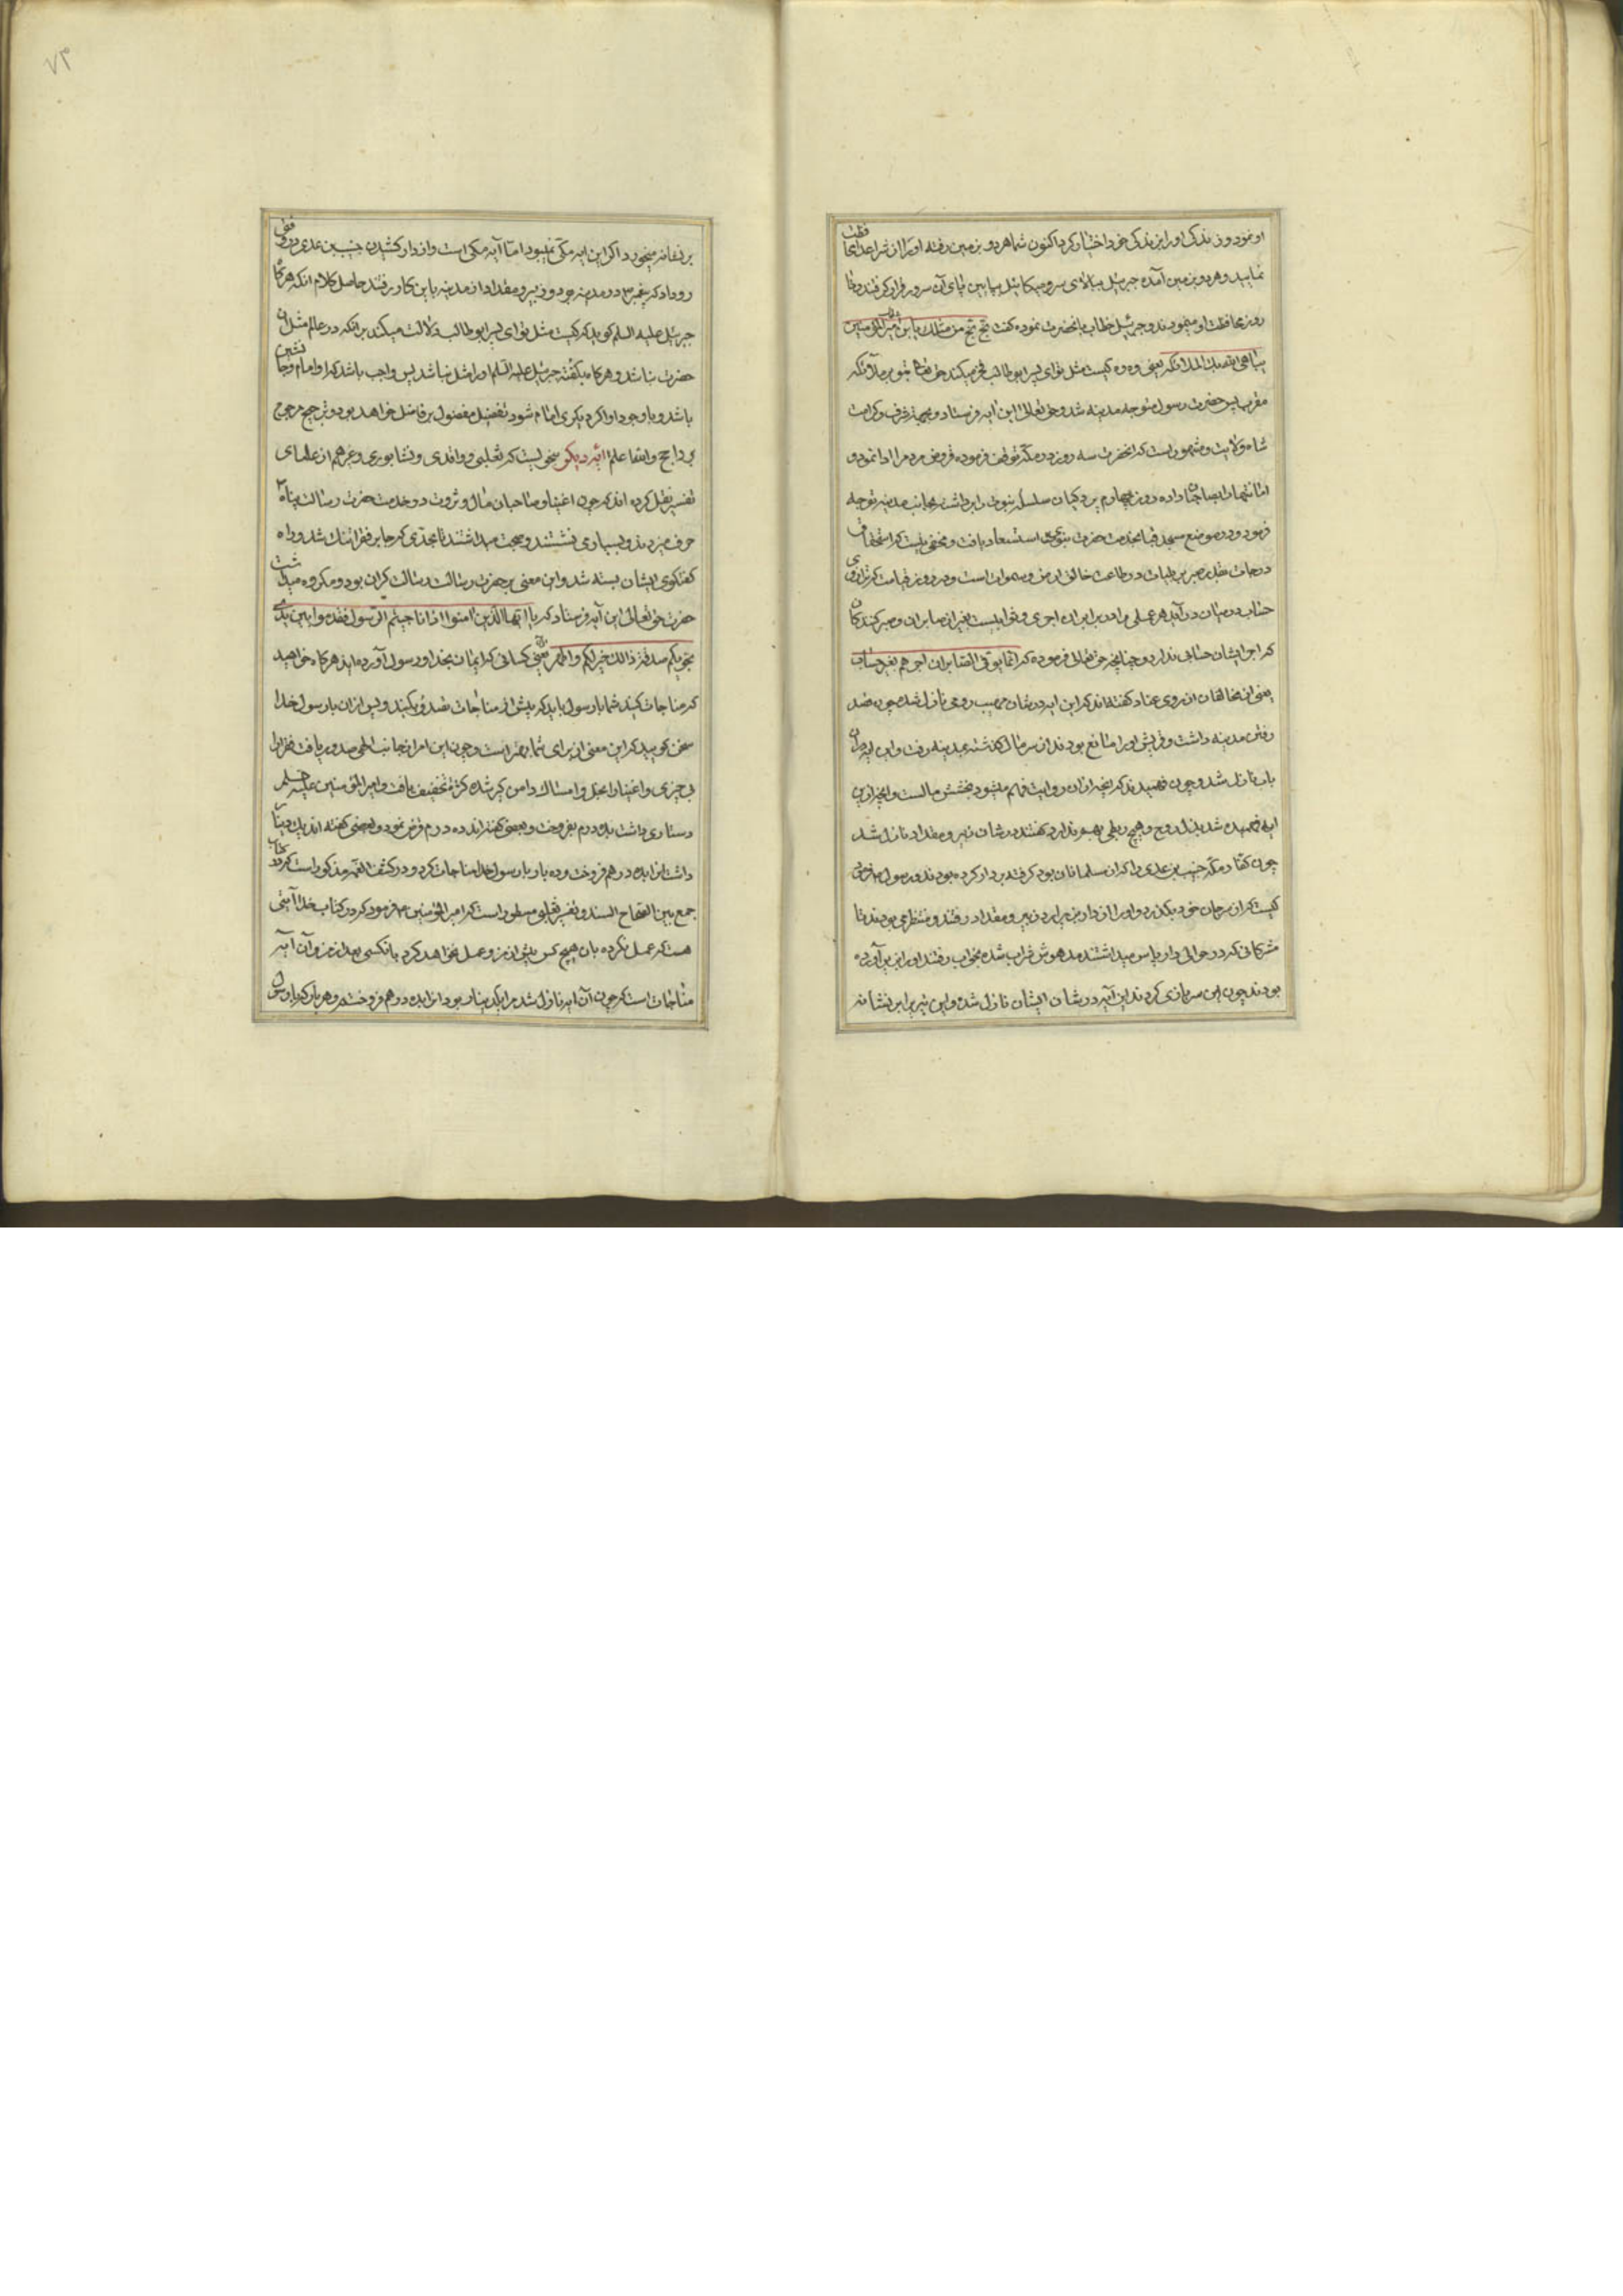 او نمود و زندگی او را بر زندگی خود اختیار کرد اکنون شما هر دو بزمین رفته او را از شر اعدا محافظت
نمایید و هر دو بزمین آمده جبرئیل ببالای سر و میکائیل بپایین پای آن سرور قرار گرفتند و تا
روز محافظت او مینمودند و جبرئیل خطاب بانحضرت نموده گفت بخ بخ من مثلك یا بن امیر المؤمنین
یباهی الله بك الملائکه یعنی وه وه کیست مثل تو ای پسر ابو طالب فخر میکند حق تعالی بتو بر ملائکه
مقرب پس حضرت رسول متوجه مدینه شد و حق تعالی این ایه فرستاد و بجهة شرف و کرامت
شاه ولایت و مشهور است که انحضرت سه روز در مکه توقف فرموده قروض مردم را ادا نمود و
امانتها را بصاحبان داده در روز چهارم پردکیان سلسله نبوت را برداشته بجانب مدینه توجه
فرمود و در موضع مسجد قبا بخدمت حضرت نبوی استسعاد یافت و مخفی نیست که استحقاق
درجات مقابل صبر بر بلیات در طاعت خالق ارض و سموات است و در روز قیامت که ترازوی
حساب در میان در آید هر عملی را در برابر ان اجری و ثوابیست بغیر از صابران و صبر کنندکان
که اجر ایشان حسابی ندارد چنانچه حق تعالی فرموده که انما یوفی الصابرون اجرهم بغیر حساب
بعضی از مخالفان از روی عناد گفته اند که این ایه در شان صهیب رومی نازل شده چون قصد
رفتن مدینه داشت و قریش او را مانع بودند از سر مال گذشته بمدینه رفت و این ایه در آن
باب نازل شد و چون فهمیدند که انچه از ان روایت فهم میشود بخشش مالست و انچه از این
ایه فهمیده شد بذل روح و هیچ ربطی بهم ندارد گفتند در شان زبیر و مقداد نازل شد
چون کفار مکه خبیب بن عدی را که از مسلمانان بود گرفته بر دار کرده بودند و رسول فرمود
کیست که از سر جان خود بگذرد و او را از دار بزیر آرد زبیر و مقداد رفتند و منتظر می بودند تا
مشرکانی که در حوالی دار پاس میداشتند مدهوش شراب شده بخواب رفتند او را بزیر آورده
بودند چون این سربازی کردند این آیه در شان ایشان نازل شد و این تیر برابر نشانه
بر نشانه میخورد اگر این ایه مکی نمیبود اما آیه مکی است و از دار کشیدن خبیب بن عدی در وقتی
رو داد که پیغمبر در مدینه بود و زبیر و مقداد از مدینه باین کار رفتند حاصل کلام انکه هرگاه
جبرئیل علیه السلم کوید که کیست مثل تو ای پسر ابو طالب دلالت میکند بر انکه در عالم مثل آن
حضرت نباشد و هرگاه بگفته جبرئیل علیه السلم او را مثل نباشد پس واجب باشد که او امام و جانشین
باشد و با وجود او اگر دیگری امام شود تفضیل مفضول بر فاضل خواهد بود و ترجیح مرجوح
بر راجح و اتفاقا علم ایه دیگر سخنی است که ثعلبی و واقدی و نشابوری و غیرهم از علمای
تفسیر نقل کرده اند که چون اغنیا و صاحبان مال و ثروت در خدمت حضرت رسالت پناه
حرف میزدند و بسیار می نشستند و صحبت میداشتند تا بحدی که جا بر فقرا تنك شد و راه
گفتگوی ایشان بسته شد و این معنی بر حضرت رسالت گران بود و مکروه میداشت
حضرت حق تعالی این آیه فرستاد که یا ایها الذین امنوا اذا ناجیتم الرسول فقدموا بین یدی
نجویکم صدقة ذالك خیر لکم و اطهر یعنی کسانی که ایمان بخدا و رسول آورده اید هرگاه خواهید
که مناجات کنید شما با رسول باید که پیش از مناجات تصدق بکنید و پس از ان با رسول خدا
سخن گویید که این معنی از برای شما بهتر است و چون این امر از جانب الهی صدور یافت فقرا را
بی چیزی و اغنیا را بخل و امساك دامن گیر شده کثرت تخفیف یافت و امیر المؤمنین علیه السلم
دستاری داشت بده درم بفروخت و بعضی گفته اند ده درم قرض نمود و بعضی گفته اند یك دینار
داشت انرا بده درهم فروخت و ده بار با رسول خدا مناجات کرد و در کشف الغمه مذکور است که در کتاب
جمع بین الصحاح السته و تفسیر ثعلبی مسطور است که امیر المؤمنین فرمود که در کتاب خدا آیتی
هست که عمل نکرده بان هیچ کس پیش از من و عمل نخواهد کرد بان کسی بعد از من و آن آیه
مناجات است که چون آن ایه نازل شد مرا یکدینار بود انرا بده درهم فروختم و هر بار که با رسول
۷۳